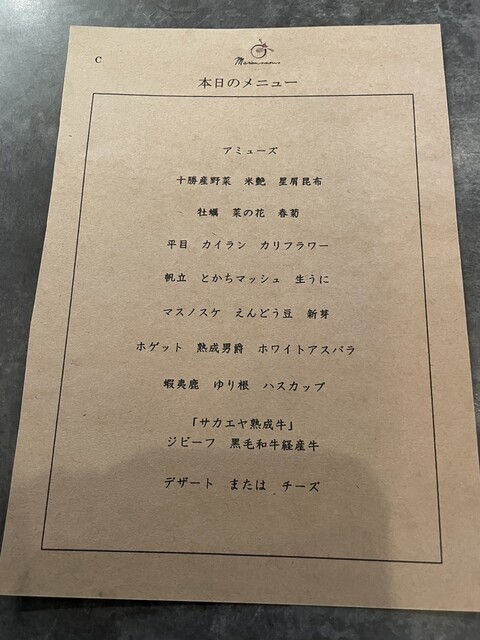 C
本日のメニュー
アミューズ
十勝産野菜　米艶　星屑昆布
牡蠣　菜の花　春菊
平目　カイラン　カリフラワー
帆立　とかちマッシュ　生うに
マスノスケ　えんどう豆　新芽
ホゲット　熟成男爵　ホワイトアスパラ
蝦夷鹿　ゆり根　ハスカップ
「サカエヤ熟成牛」
ジビーフ　黒毛和牛経産牛
デザート　または　チーズ